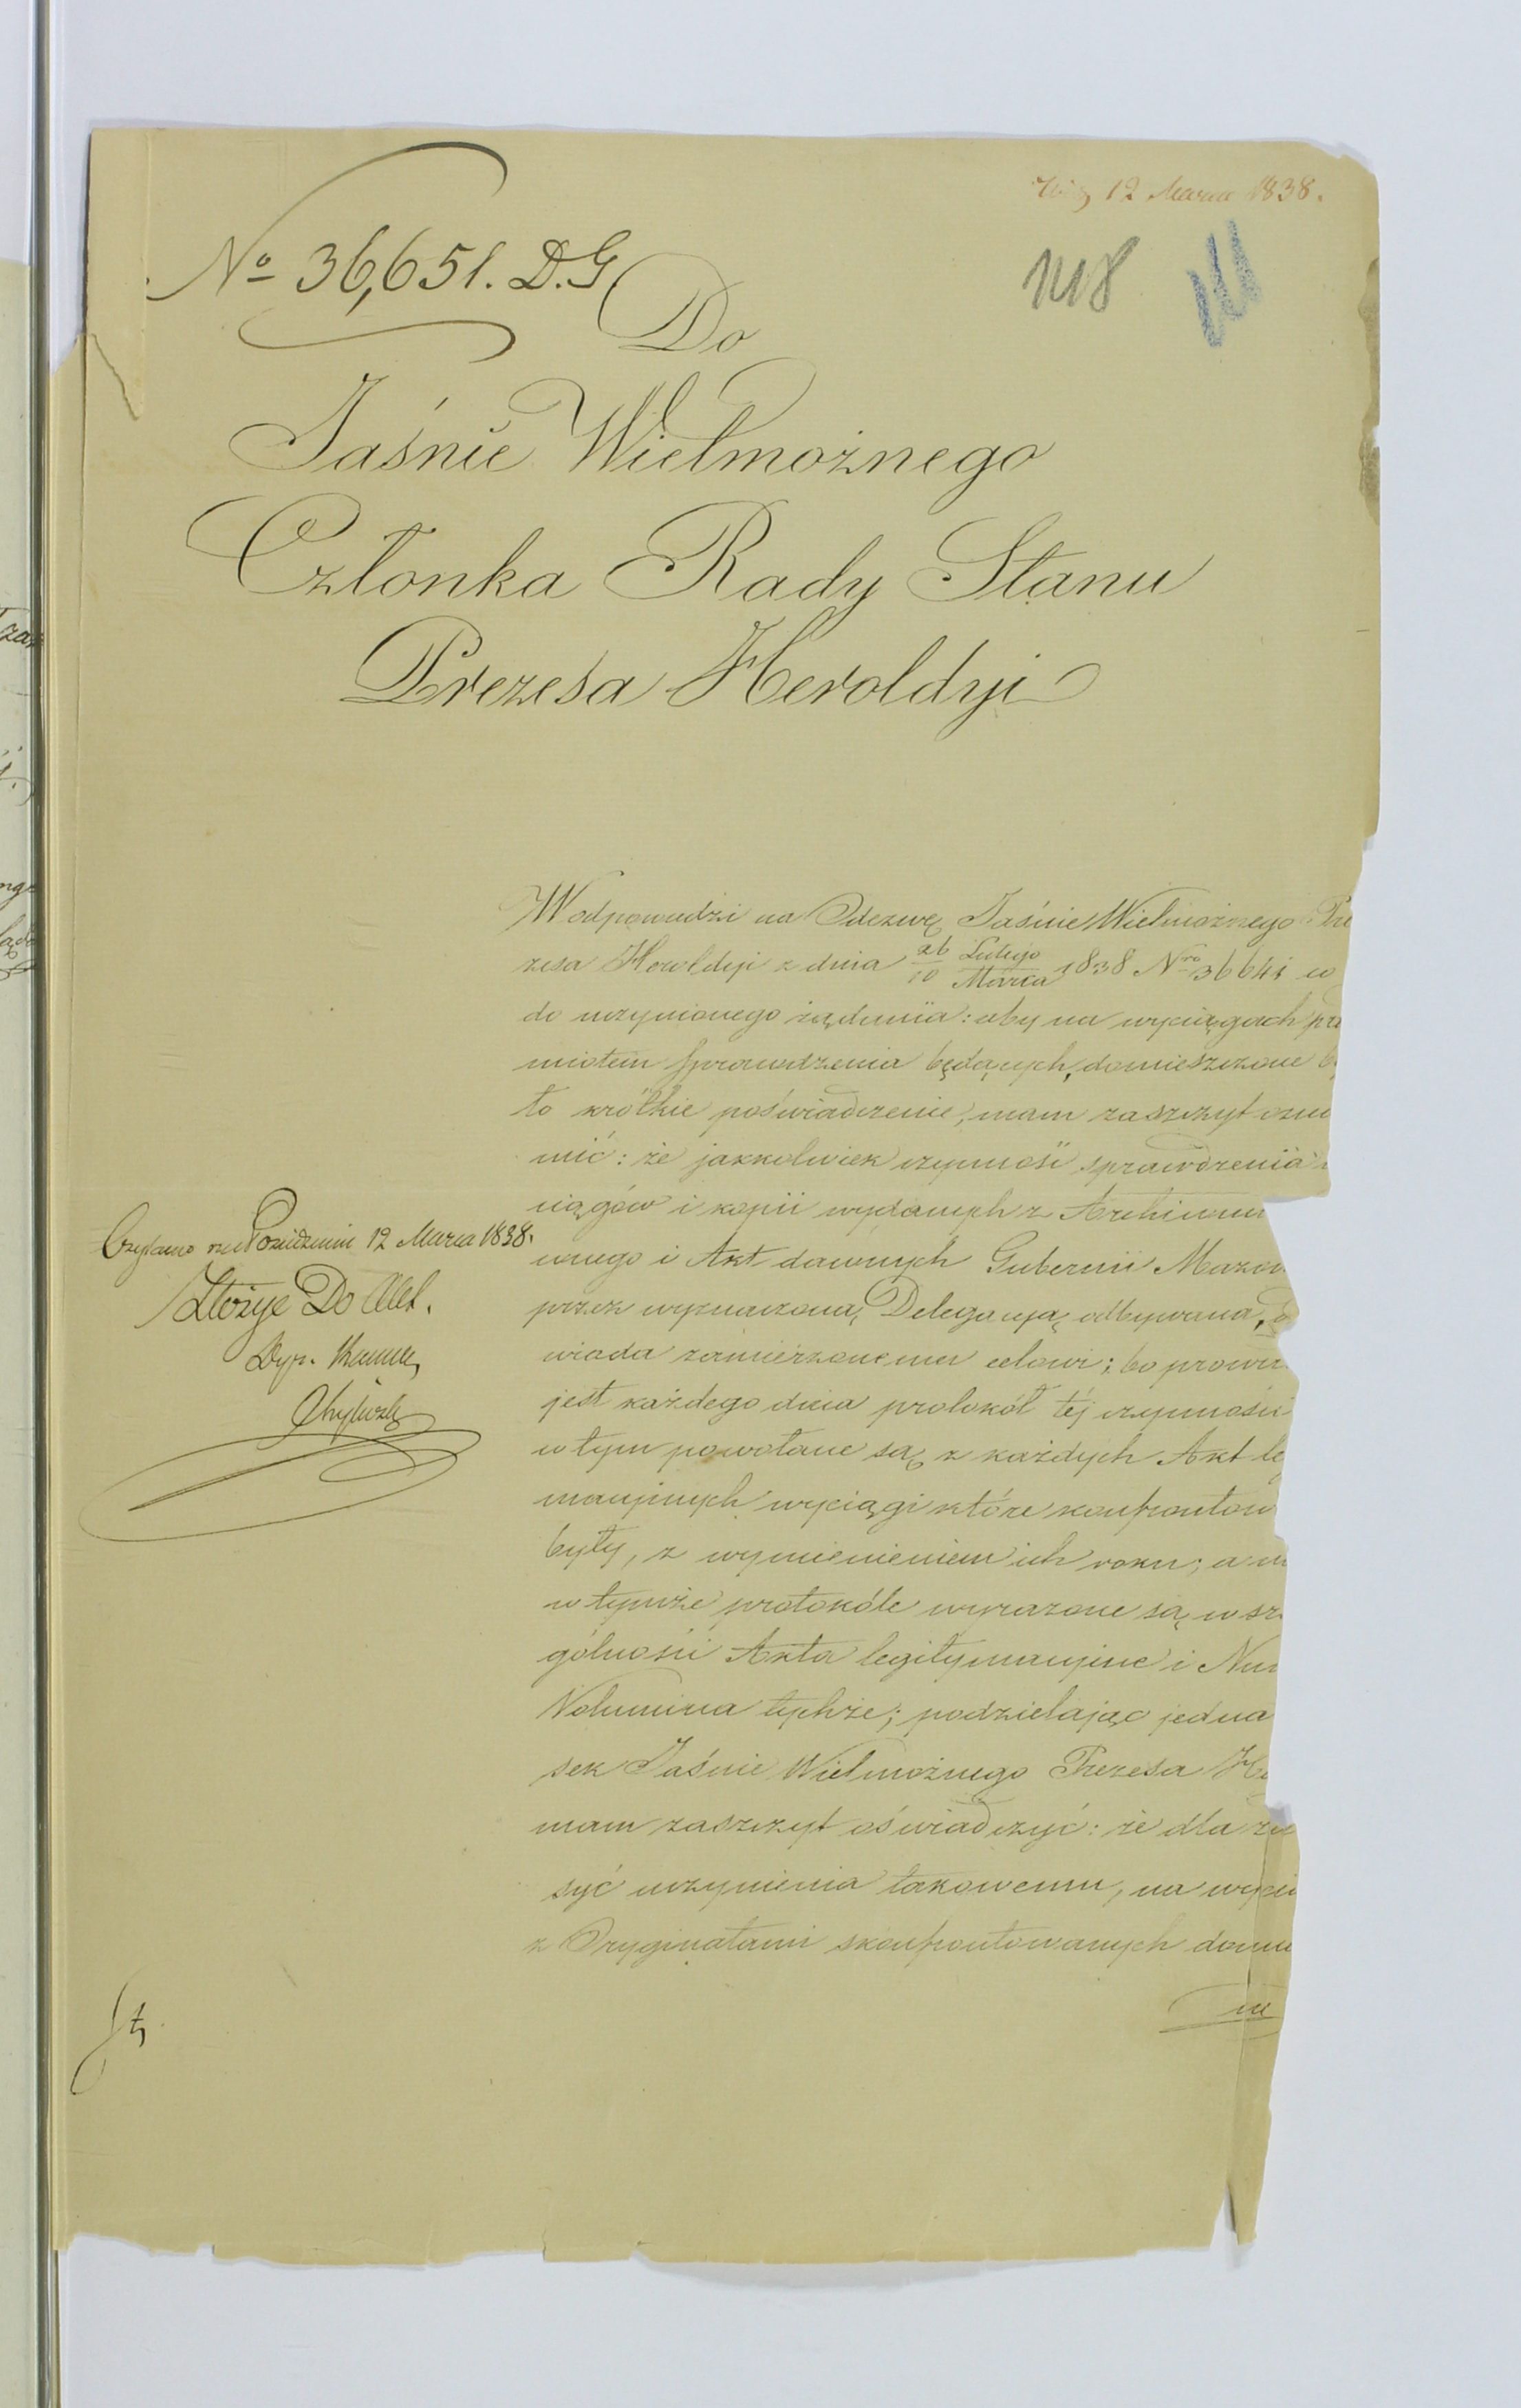 12 Marca 1838.
No 36,651. D.G
Do
Jaśnie Wielmożnego
Członka Rady Stanu
Prezesa Heroldyi
W odpowiedzi na Odezwę Jaśnie Wielmożnego Pre
zesa Heroldyi z dnia 26 Lutego / 10 Marca 1838 Nro 36641 co
do uczynionego żądania: aby na wyciągach prz
miotem sprawdzenia będących, domieszczone b
to krótkie poświadczenie, mam zaszczyt ozna
mić: że jakkolwiek czynność sprawdzenia
ciągów i kopii wydanych z Archiwum
wnego i Akt dawnych Gubernii Mazow
przez wyznaczoną Delegacyą odbywana, o
wiada zamierzonemu celowi; bo prowa
jest każdego dnia protokół téj czynności
w tym powołane są z każdych Akt le
macyjnych wyciągi które konfrontow
były, z wymienieniem ich roku; a
w tymże protokóle wyrażone są w sz
gólności Akta legitymacyjne i Nu
Volumina tychże; podzielając jedna
sek Jaśnie Wielmożnego Prezesa He
mam zaszczyt oświadczyć: że dla za
syć uczynienia takowemu, na wyci
z Oryginałami skonfrontowanych domie
Czytano na Posiedzeniu 12 Marca 1838.
Złożyć Do Akt.